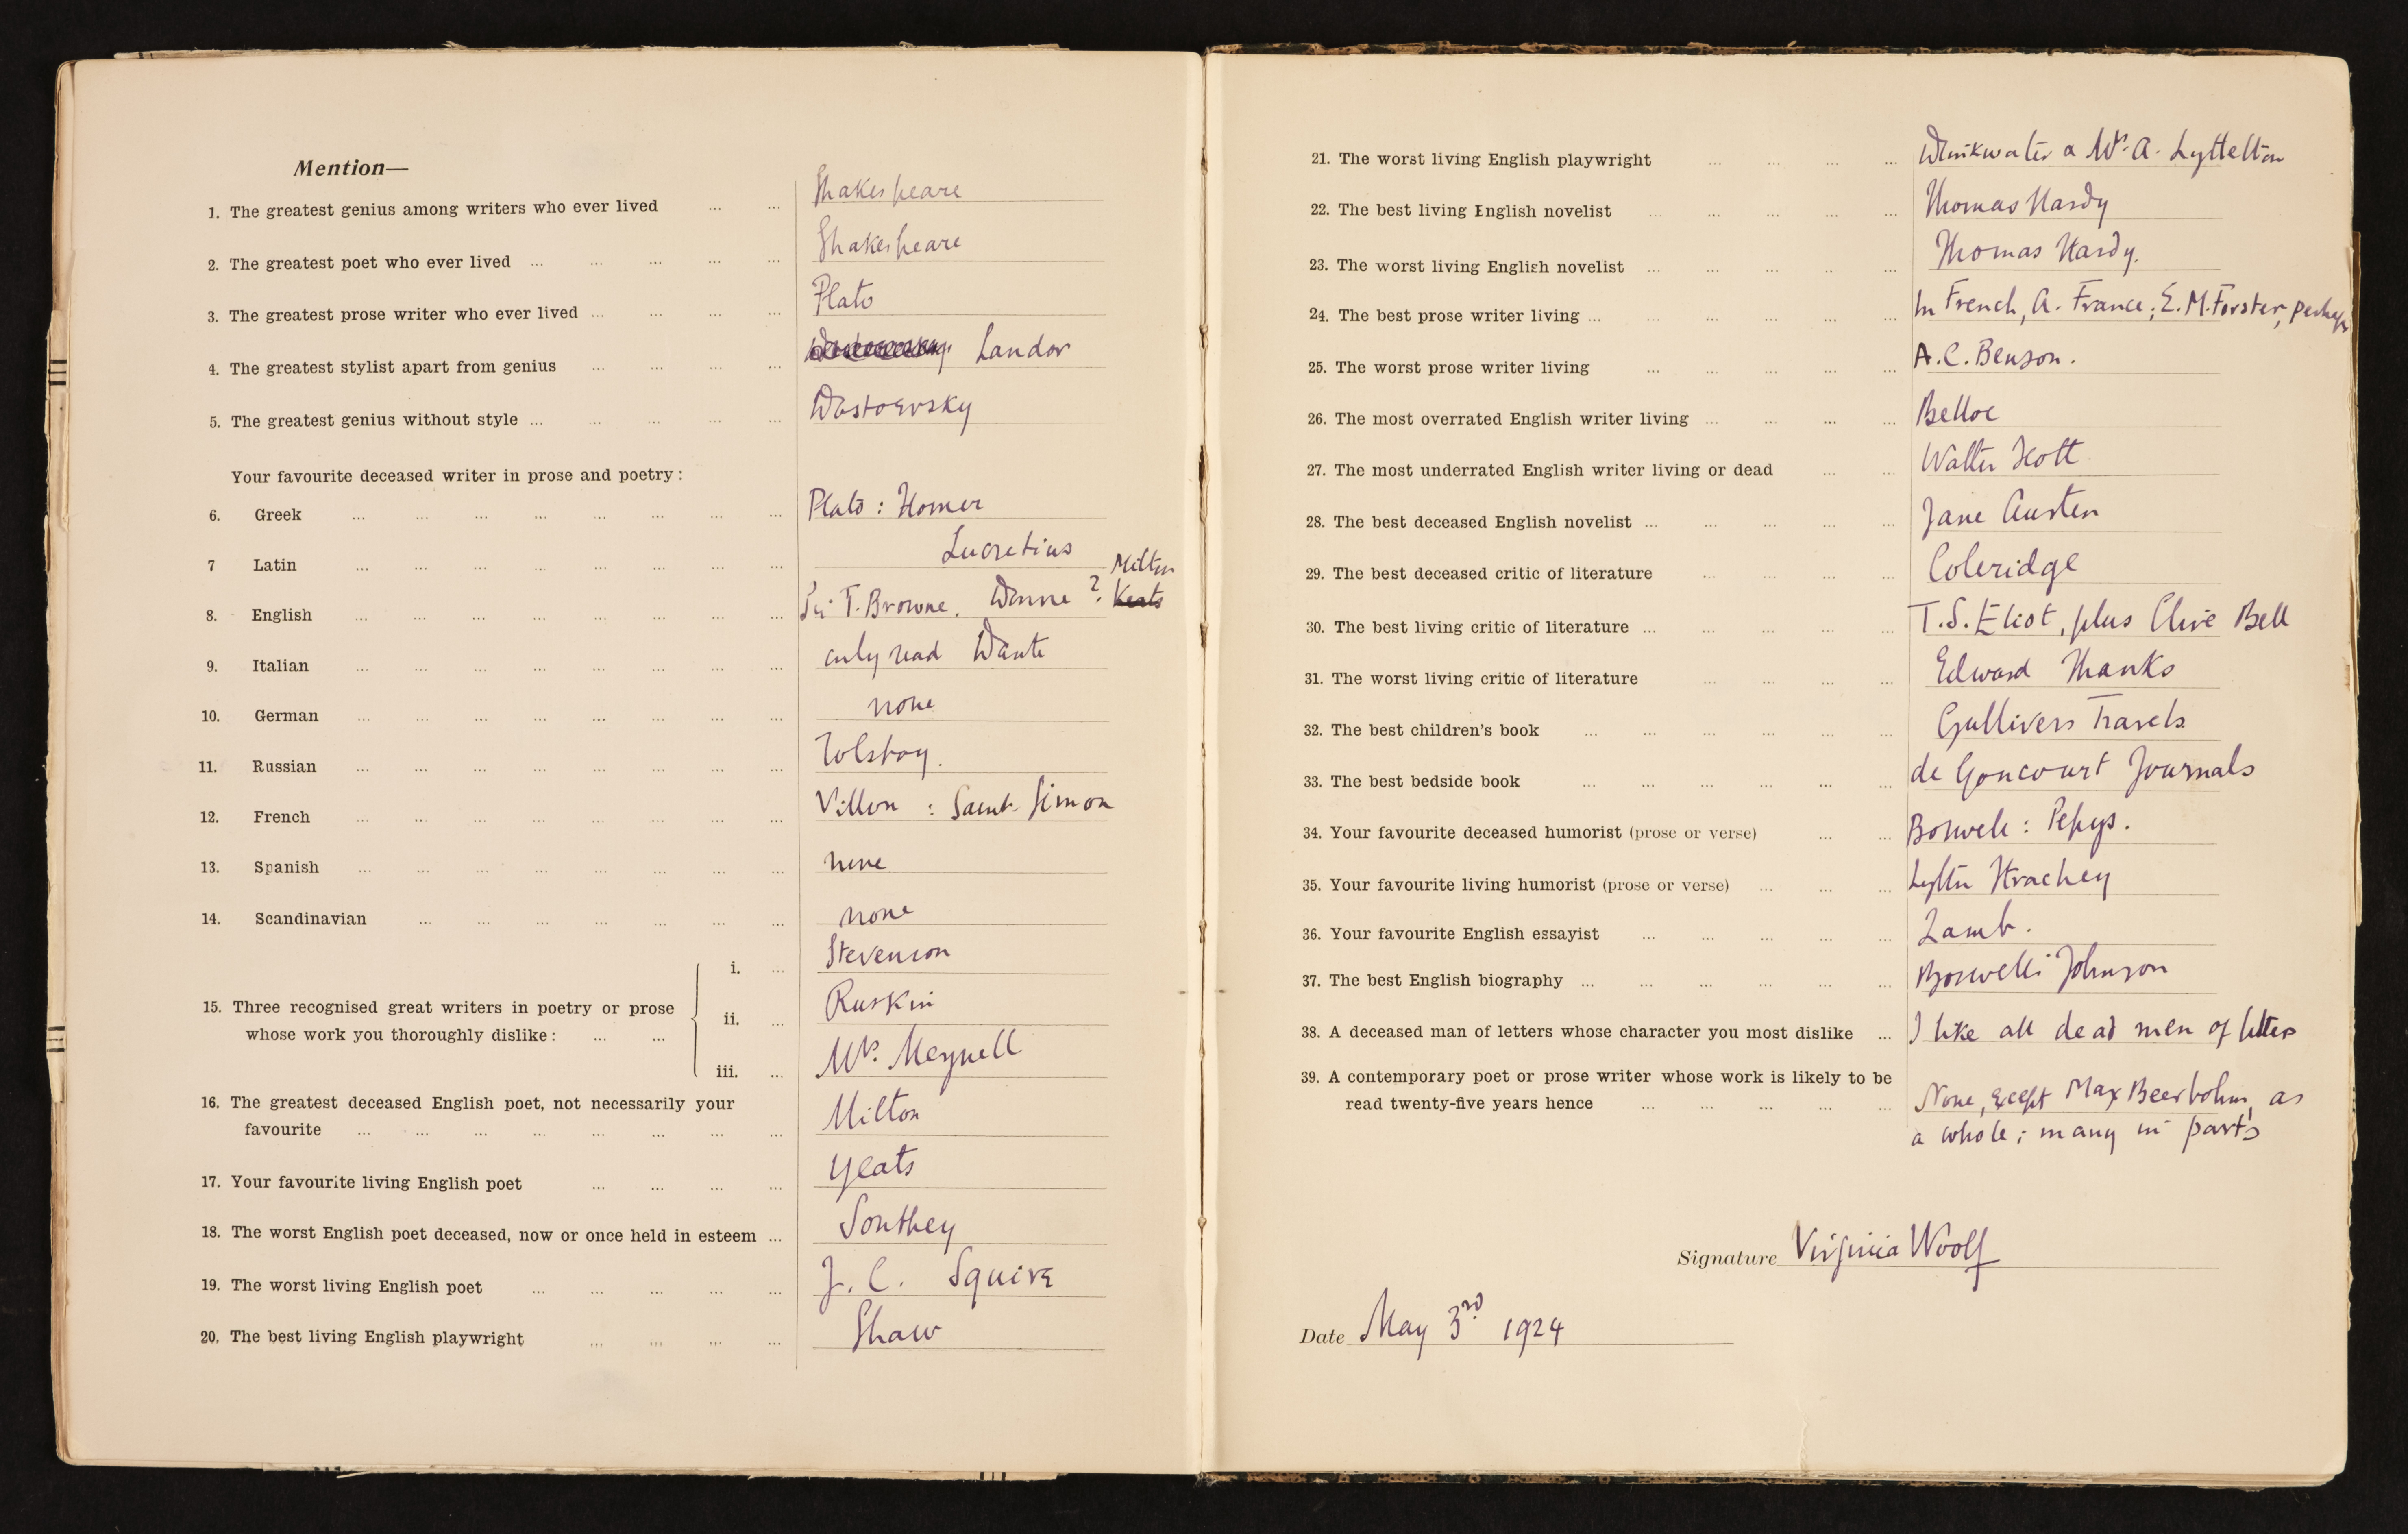 Mention—
1. The greatest genius among writers who ever lived ... ... Shakespeare
2. The greatest poet who ever lived ... ... ... ... ... Shakespeare
3. The greatest prose writer who ever lived ... ... ... ... Plato
4. The greatest stylist apart from genius ... ... ... ... Landor
5. The greatest genius without style ... ... ... ... ... Dostoevsky
Your favourite deceased writer in prose and poetry:
6. Greek ... ... ... ... ... ... ... ... Plato : Homer
7 Latin ... ... ... ... ... ... ... ... Lucretius
Milton
8. English ... ... ... ... ... ... ... ... Sir T. Browne. Donne ? Keats
9. Italian ... ... ... ... ... ... ... ... only read Dante
10. German ... ... ... ... ... ... ... ... none
11. Russian ... ... ... ... ... ... ... ... Tolstoy.
12. French ... ... ... ... ... ... ... ... Villon : Saint-Simon
13. Spanish ... ... ... ... ... ... ... ... none
14. Scandinavian ... ... ... ... ... ... ... none
i. ... Stevenson
15. Three recognised great writers in poetry or prose
ii. ... Ruskin
whose work you thoroughly dislike: ... ...
iii. ... Mrs. Meynell
16. The greatest deceased English poet, not necessarily your
favourite ... ... ... ... ... ... ... ... Milton
17. Your favourite living English poet ... ... ... ... Yeats
18. The worst English poet deceased, now or once held in esteem ... Southey
19. The worst living English poet ... ... ... ... ... J. C. Squire
20. The best living English playwright ... ... ... ... Shaw
21. The worst living English playwright ... ... ... ... Drinkwater & Mrs. A. Lyttelton
22. The best living English novelist ... ... ... ... ... Thomas Hardy
23. The worst living English novelist ... ... ... ... ... Thomas Hardy.
24. The best prose writer living ... ... ... ... ... ... In French, A. France; E. M. Forster, perhaps
25. The worst prose writer living ... ... ... ... ... A. C. Benson.
26. The most overrated English writer living ... ... ... ... Belloc
27. The most underrated English writer living or dead ... ... Walter Scott
28. The best deceased English novelist ... ... ... ... ... Jane Austen
29. The best deceased critic of literature ... ... ... ... Coleridge
30. The best living critic of literature ... ... ... ... ... T. S. Eliot, plus Clive Bell
31. The worst living critic of literature ... ... ... ... Edward Shanks
32. The best children's book ... ... ... ... ... ... Gullivers Travels
33. The best bedside book ... ... ... ... ... ... de Goncourt Journals
34. Your favourite deceased humorist (prose or verse) ... ... Boswell : Pepys.
35. Your favourite living humorist (prose or verse) ... ... ... Lytton Strachey
36. Your favourite English essayist ... ... ... ... ... Lamb.
37. The best English biography ... ... ... ... ... ... Boswell's Johnson
38. A deceased man of letters whose character you most dislike ... I like all dead men of letters
39. A contemporary poet or prose writer whose work is likely to be
read twenty-five years hence ... ... ... ... ... None, except Max Beerbohm, as
a whole; many in parts
Signature Virginia Woolf
Date May 3rd 1924